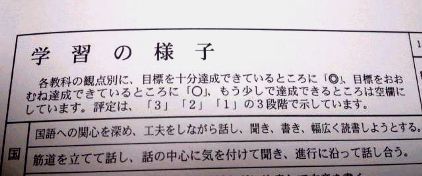 学習の様子
各教科の観点別に、目標を十分達成できているところに「◎」、目標をおお
むね達成できているところに「○」、もう少しで達成できるところは空欄に
しています。評定は、「3」「2」「1」の3段階で示しています。
国
国語への関心を深め、工夫をしながら話し、聞き、書き、幅広く読書しようとする。
筋道を立てて話し、話の中心に気を付けて聞き、進行に沿って話し合う。